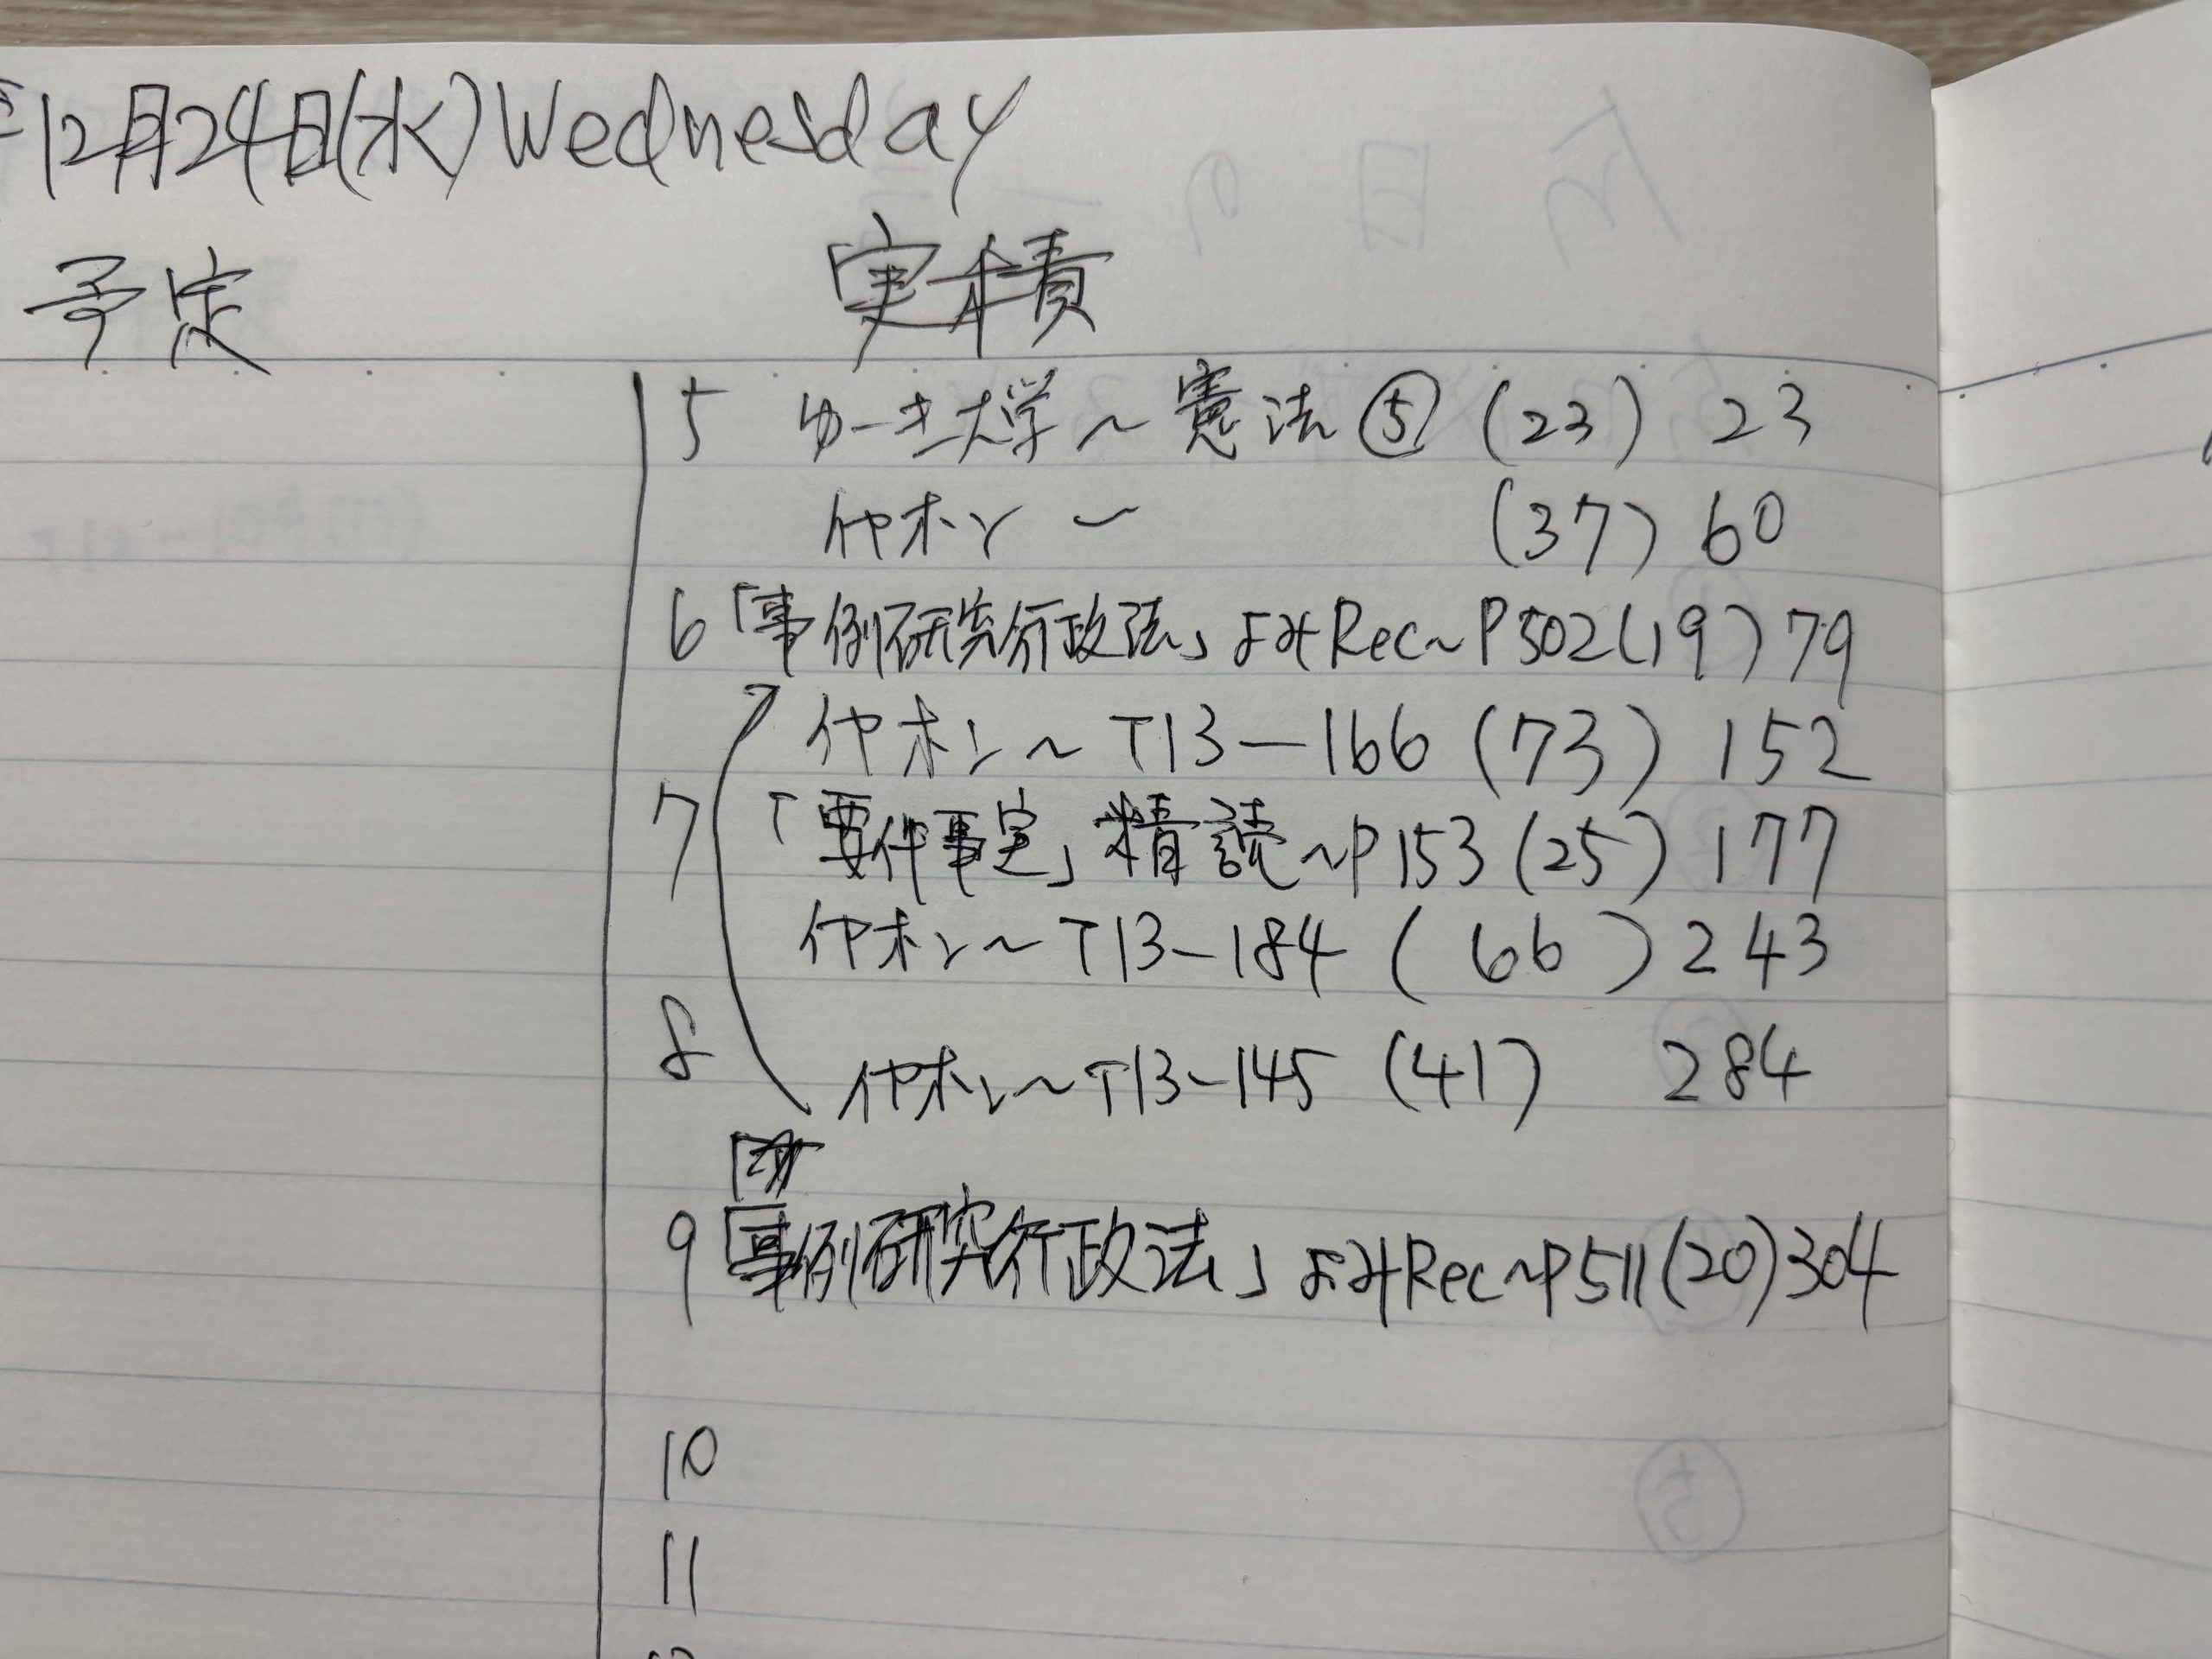 12月24日(水)Wednesday
予定 実績
5 ゆーき大学～憲法⑤(23) 23
イヤホン～ (37) 60
6「事例研究行政法」よみRec～P502(19)79
イヤホン～T13-166(73)152
7「要件事実」精読～P153(25)177
イヤホン～T13-184(66)243
8 イヤホン～T13-145(41) 284
9「事例研究行政法」よみRec～P511(20)304
10
11